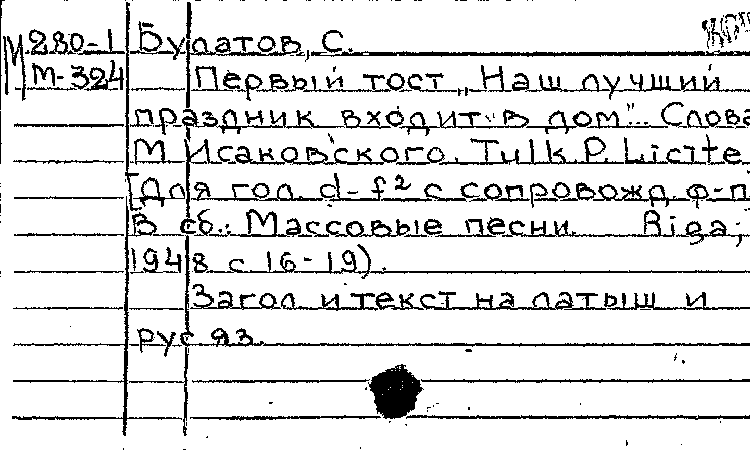 М 280-1 Булатов, С.
М-324 Первый тост „Наш лучший
праздник входит в дом"... Слова
М. Исаковского. Tulk. P. Licīte
[Для гол. d-f² с сопровожд. ф-п
В сб.: Массовые песни. Rīga,
1948 с 16-19).
Загол и текст на латыш и
рус яз.